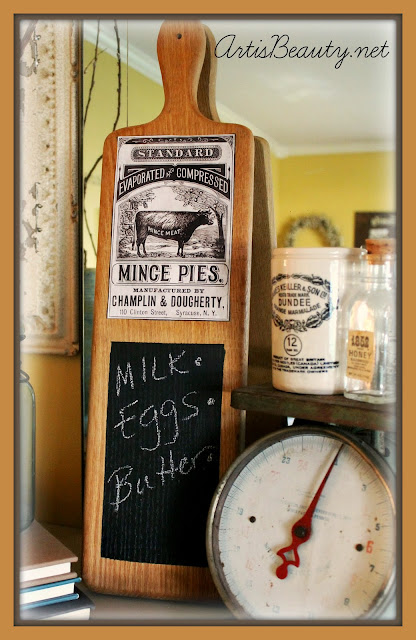 ArtisBeauty.net
STANDARD
EVAPORATED AND COMPRESSED
MINCE MEAT
MINCE PIES.
MANUFACTURED BY
CHAMPLIN & DOUGHERTY,
110 Clinton Street, Syracuse, N. Y.
MILK.
Eggs.
Butter.
KEILLER & SON
DUNDEE
MARMALADE
12
GREAT BRITAIN
HONEY
23
6